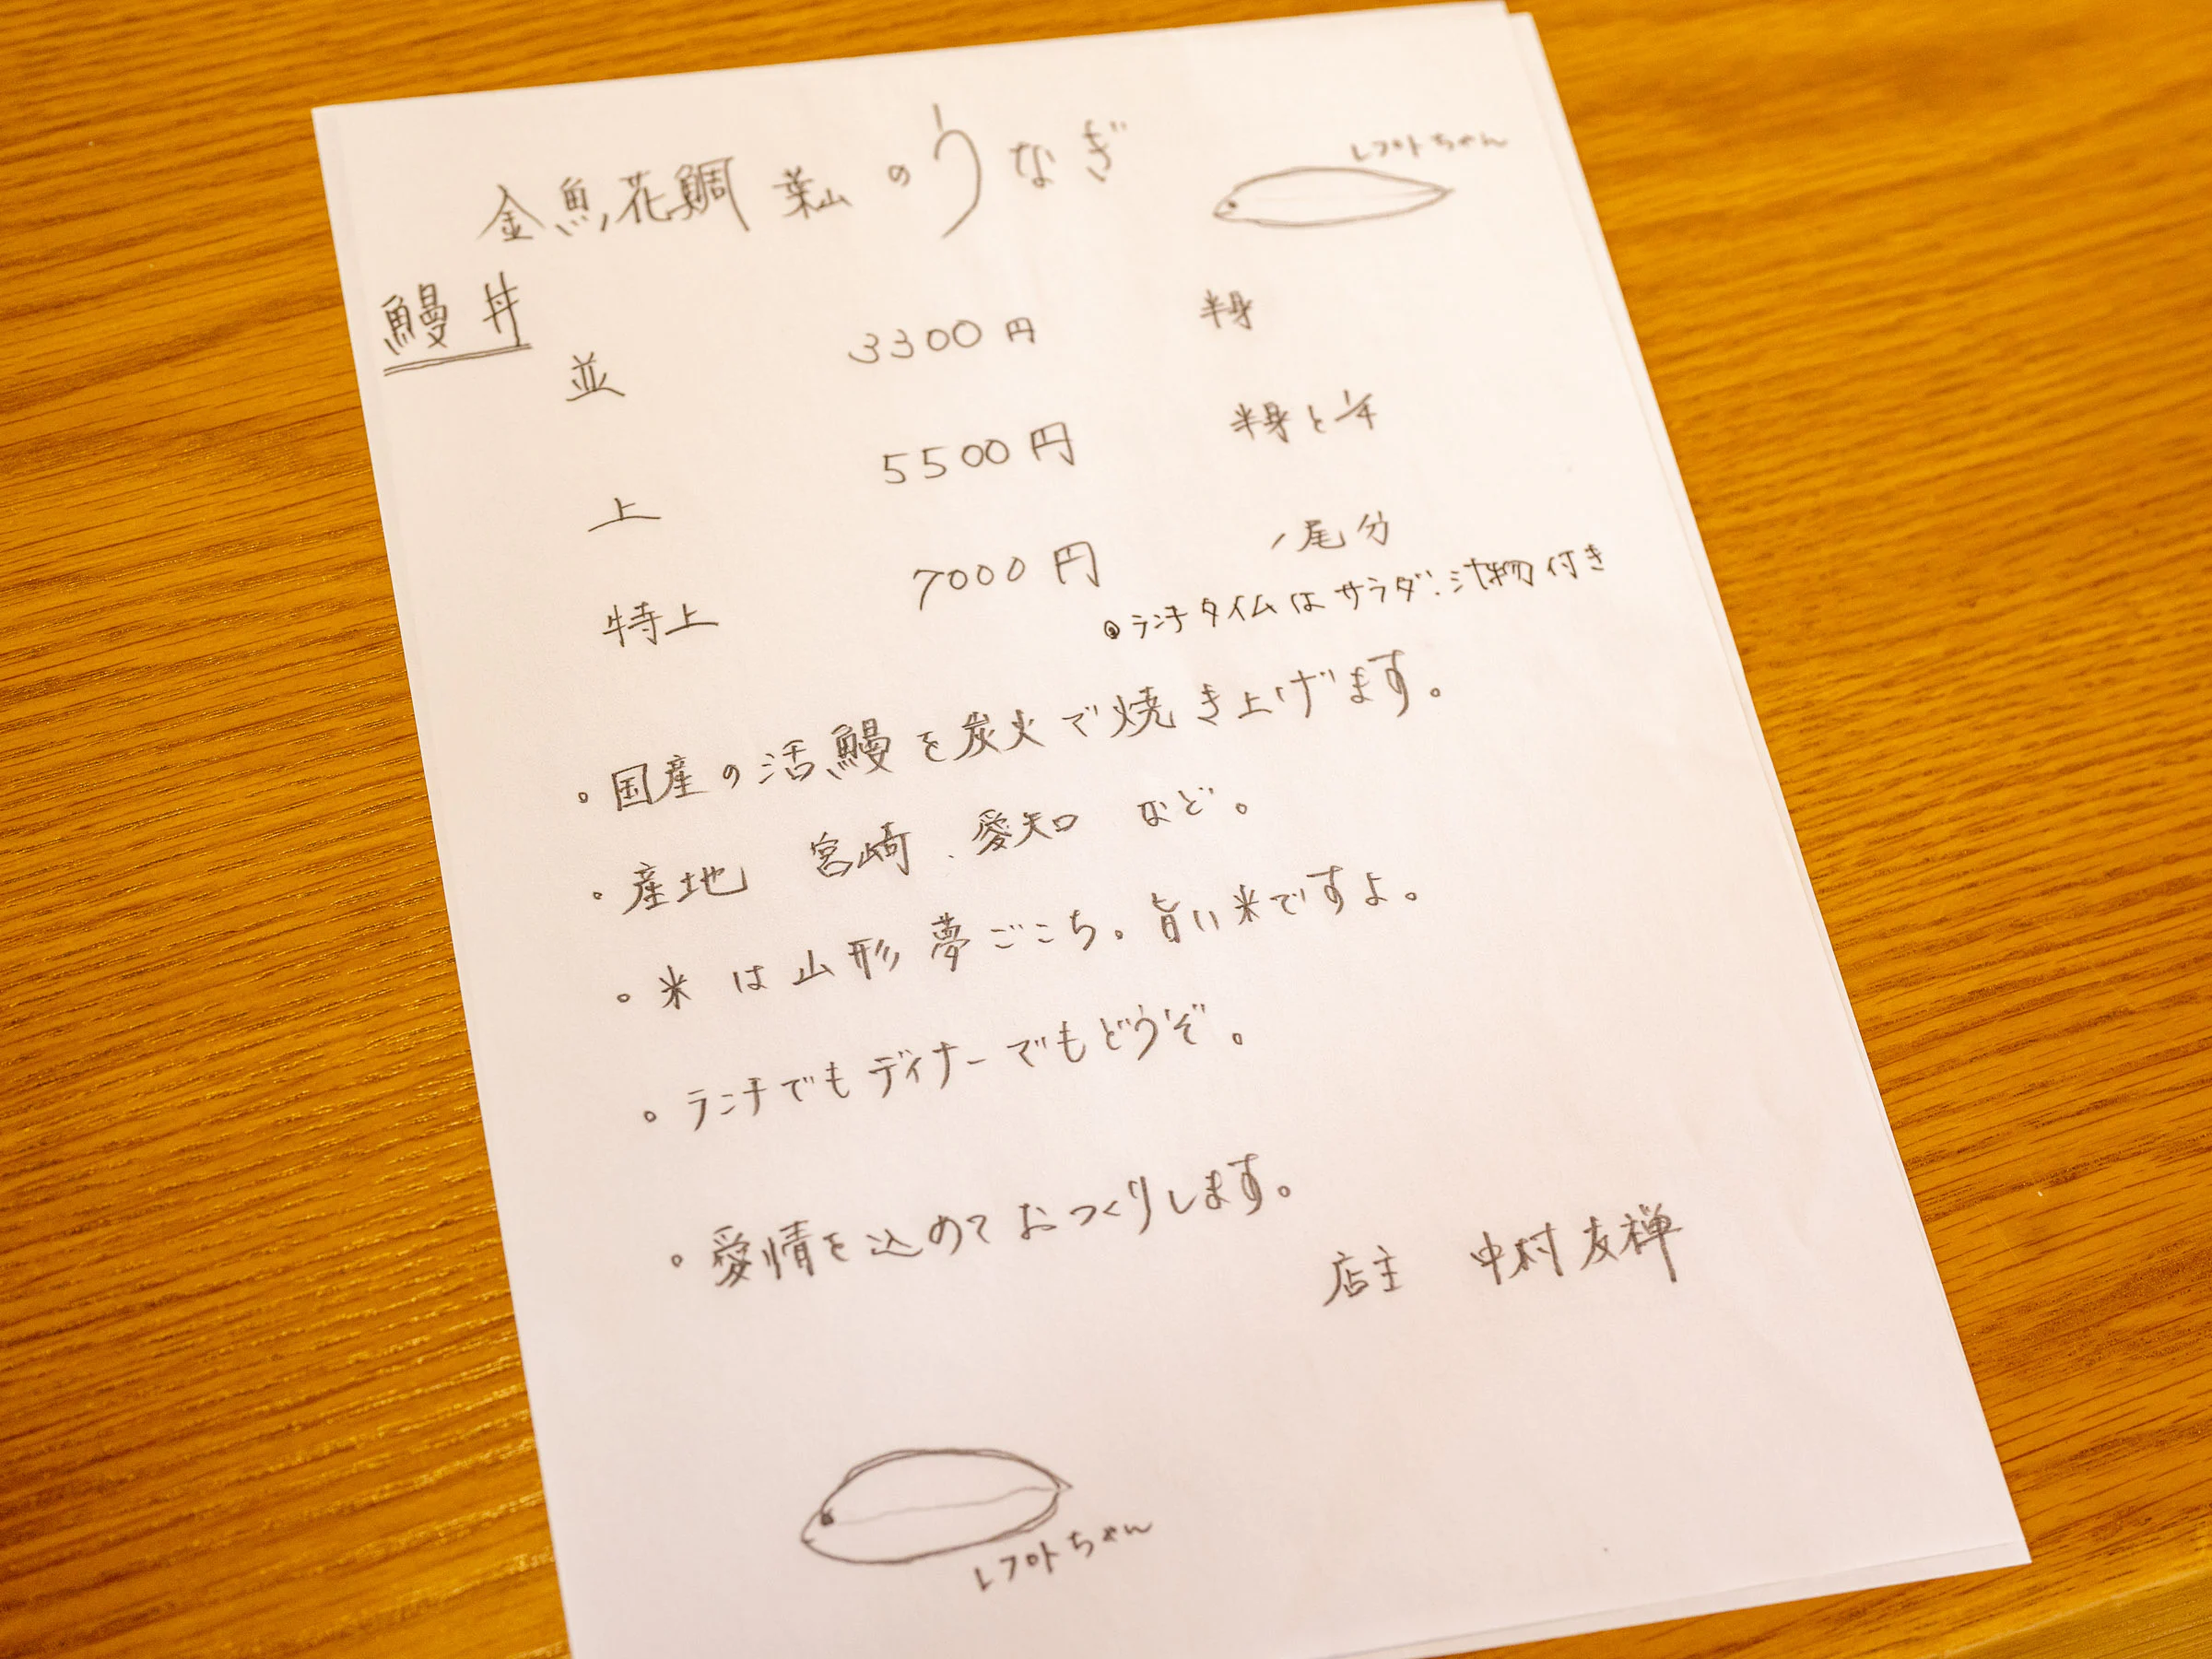 金魚花鯛 葉山のうなぎ
レフトちゃん
鰻丼
並 3300円 半身
上 5500円 半身と1/4
特上 7000円 1尾分
◎ランチタイムはサラダ.汁物付き
。国産の活鰻を炭火で焼き上げます。
・産地 宮崎、愛知 など。
。米は山形夢ごこち。旨い米ですよ。
。ランチでもディナーでもどうぞ。
。愛情を込めておつくりします。
店主 中村友禅
レフトちゃん